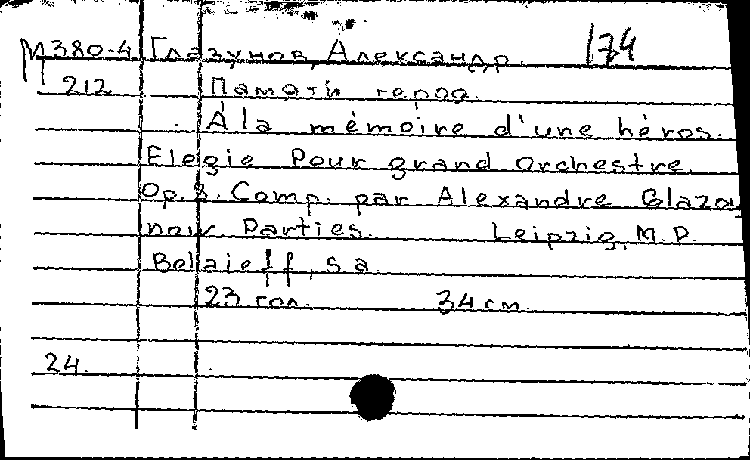 М380-4 Глазунов, Александр. 174
212 Памяти героя.
À la mémoire d'une héros.
Elegie Pour grand orchestre.
Op. 8. Comp. par Alexandre Glazou
now Parties. Leipzig, M.P.
Belaieff, s.a.
23 гол. 34 см.
24.